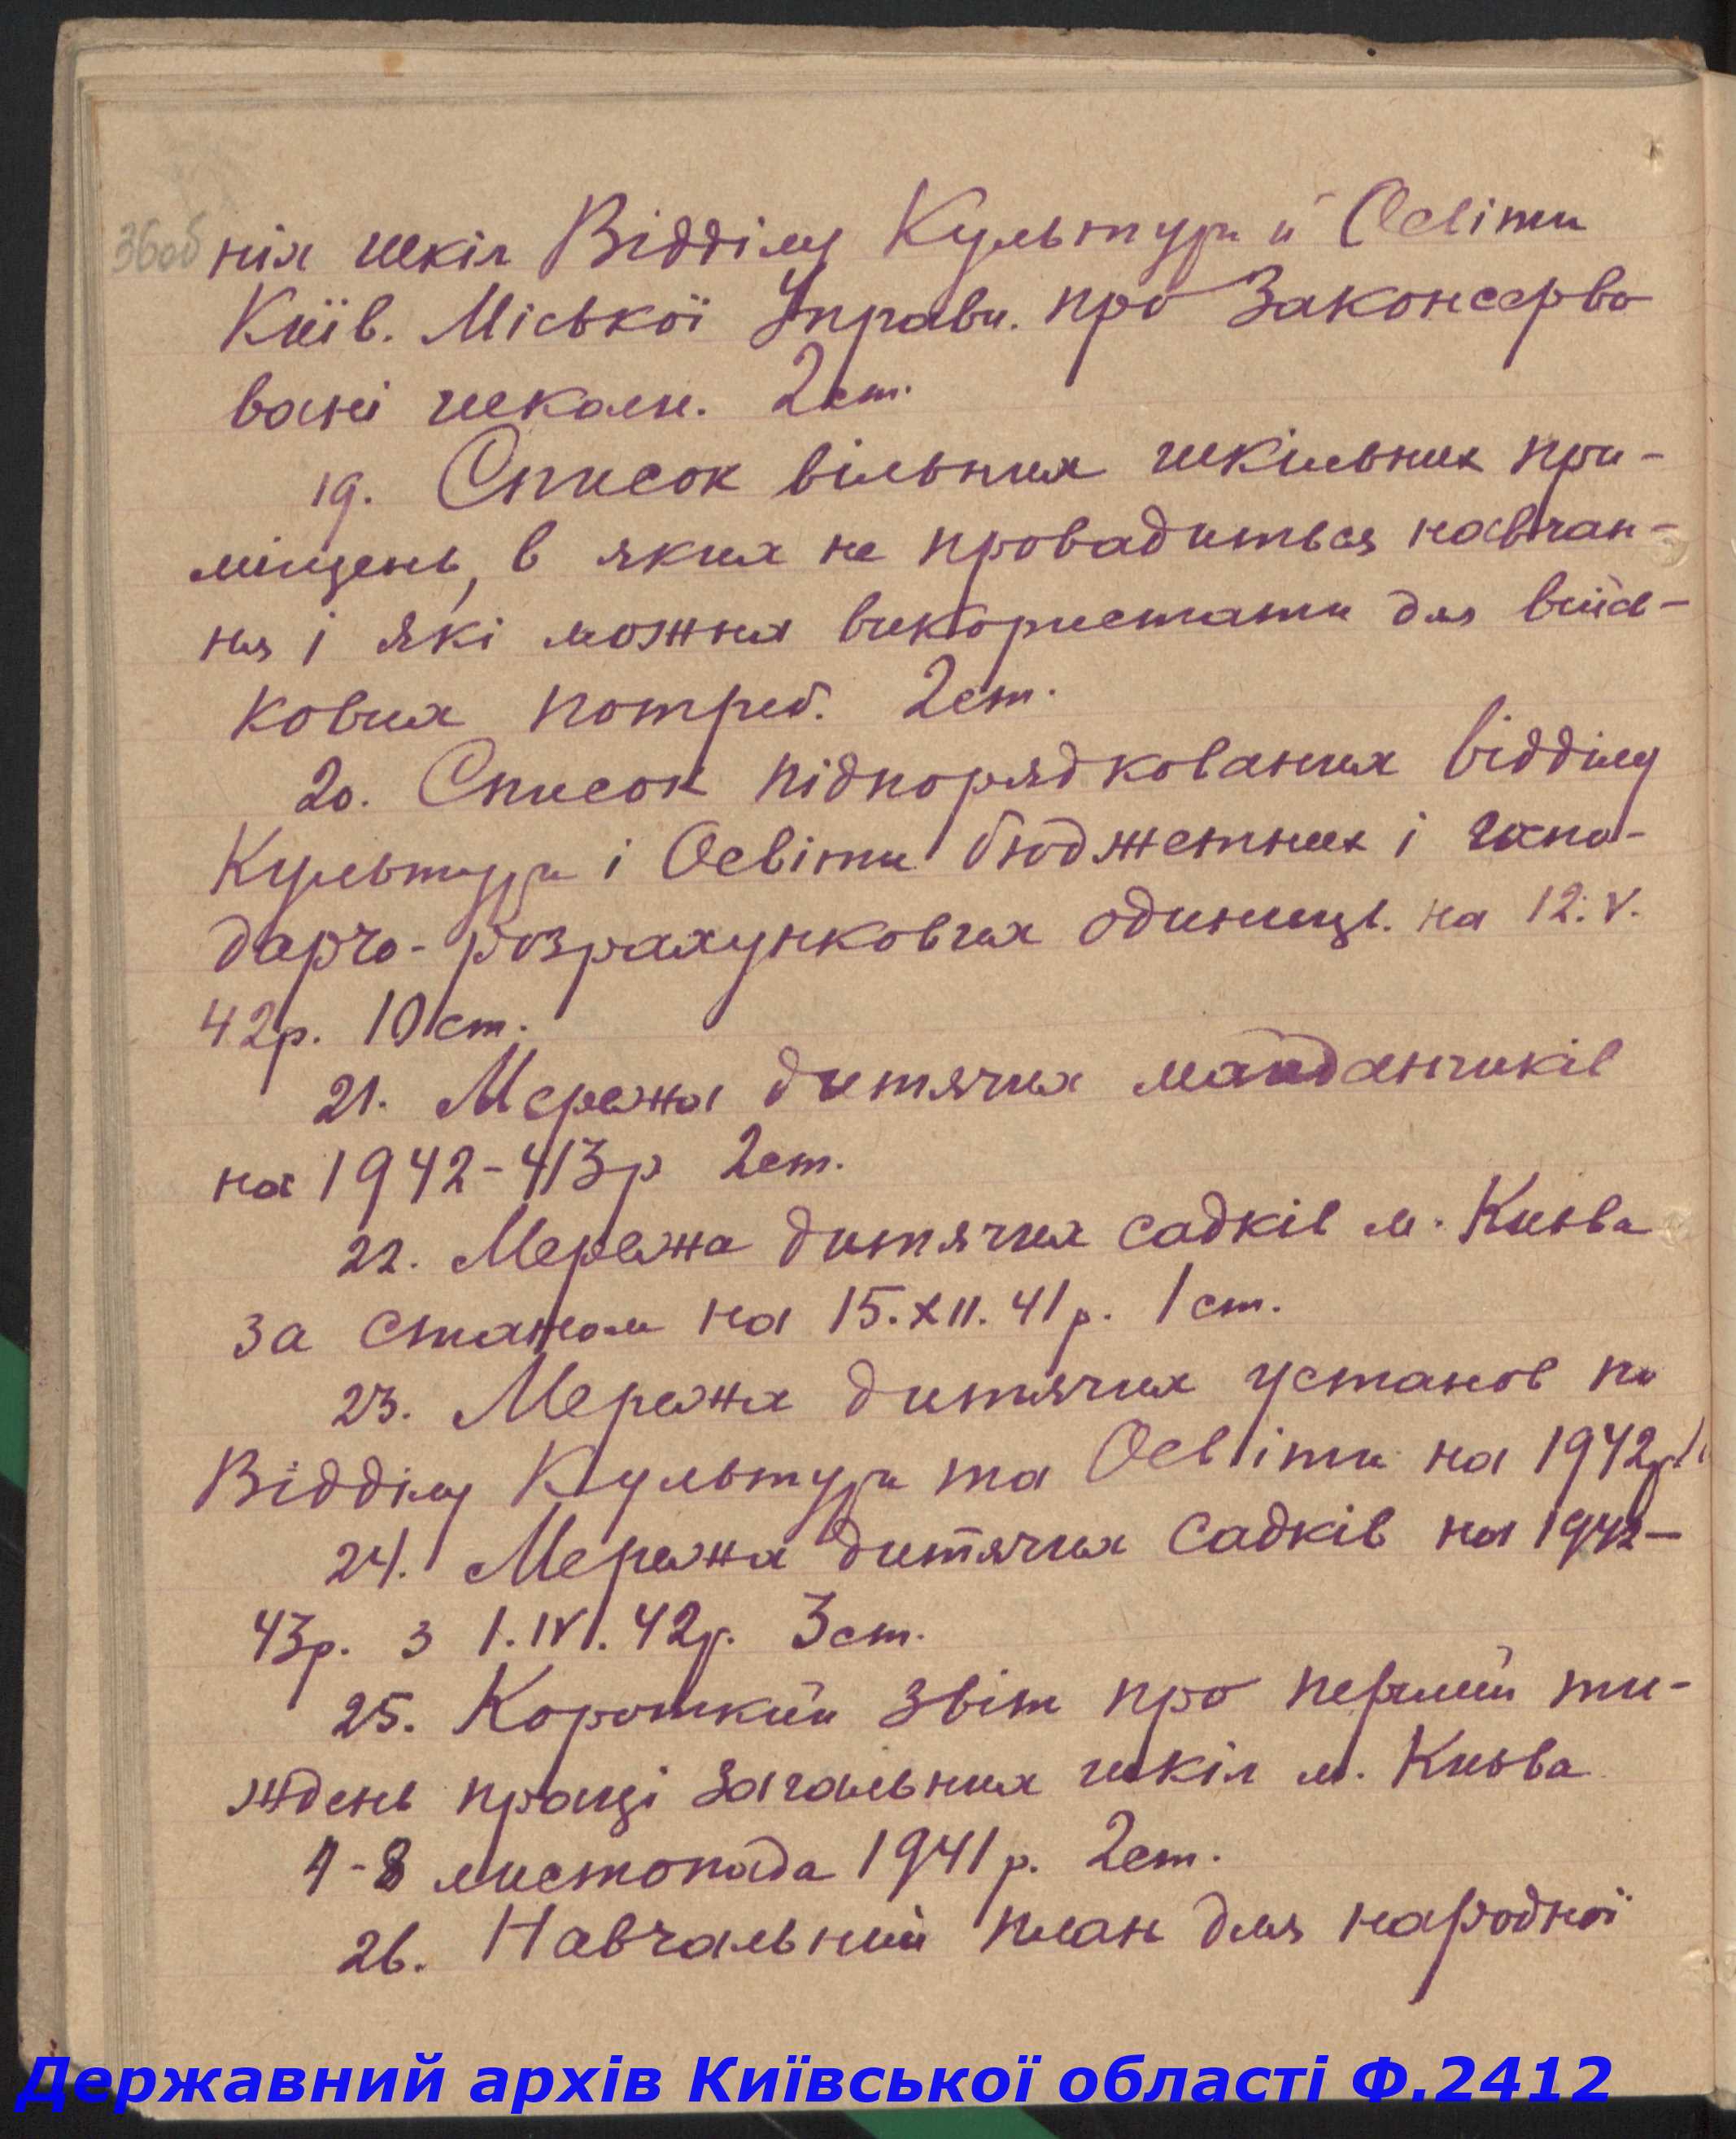 36об
ня шкіл Відділу Культури й Освіти
Київ. Міської Управи. про Законсерво
вані школи. 2 ст.
19. Список вільних шкільних при-
міщень, в яких не провадиться навчан-
ня і які можна використати для війсь-
кових потреб. 2 ст.
20. Список підпорядкованих відділу
Культури і Освіти бюджетних і госпо-
дарчо-розрахункових одиниць. на 12.V.
42р. 10 ст.
21. Мережа дитячих майданчиків
на 1942-43р 2 ст.
22. Мережа дитячих садків м. Києва
за станом на 15.XII.41р. 1 ст.
23. Мережа дитячих установ по
Відділу Культури та Освіти на 1942р.
24. Мережа дитячих садків на 1942-
43р. з 1.IV.42р. 3 ст.
25. Короткий звіт про перший ти-
ждень праці загальних шкіл м. Києва
4-8 листопада 1941р. 2 ст.
26. Навчальний план для народної
Державний архів Київської області Ф.2412